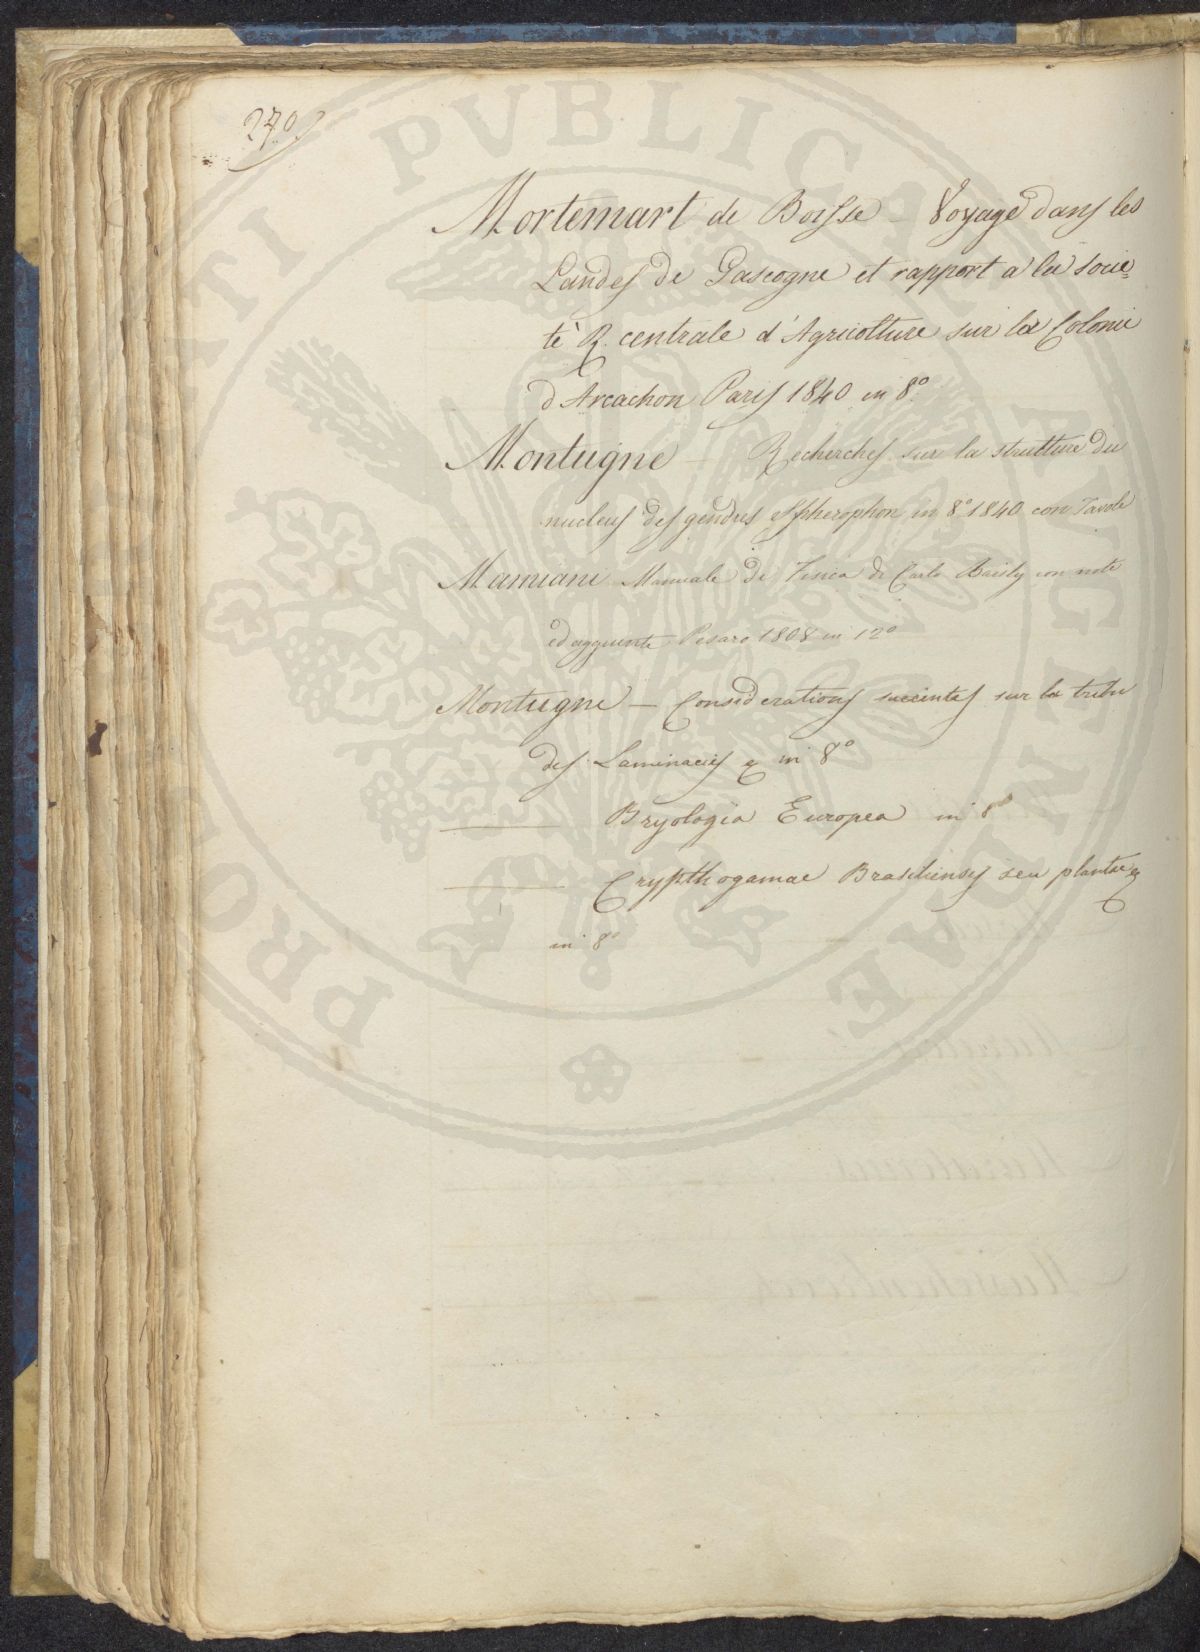 270
Mortemart de Boisse – Voyage dans les
Landes de Gascogne et rapport a la socie=
tè R. centrale d'Agricolture sur la Colonie
d'Arcachon Paris 1840 in 8.°
Montagne – Recherches sur la strutture du
nucleus des gendres Spherophon in 8.° 1840 con Tavole
Mamiani Manuale di Fisica di Carlo Bailly con note
ed aggiunte Pesaro 1808 in 12°
Montagne – Considerations succintes sur la tribu
des Laminaciès & in 8°
— Bryologia Europea in 8°
— Crypthogamae Brasiliensis seu plantae &
in 8°
PROSPERITATI PVBLICAE AVGENDAE